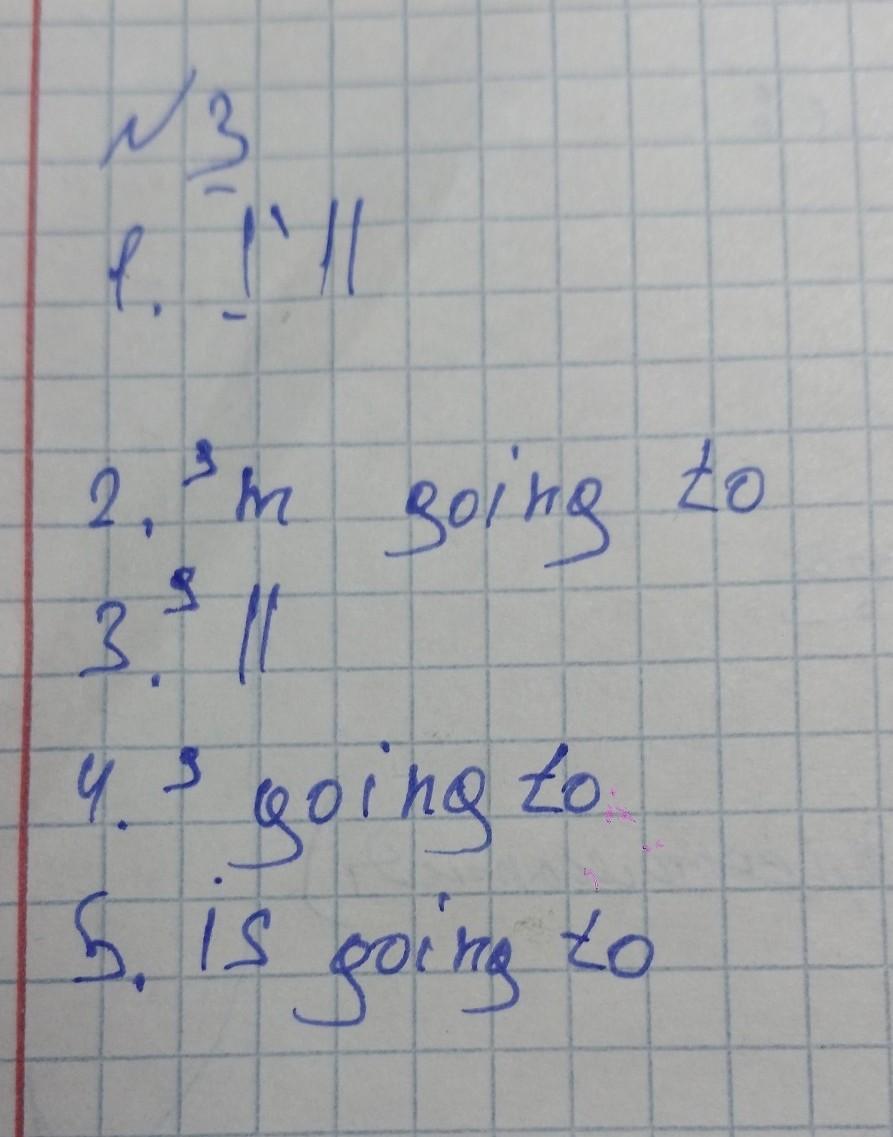 №3
1. I'll
2. 'm going to
3. 'll
4. ' going to
5. is going to